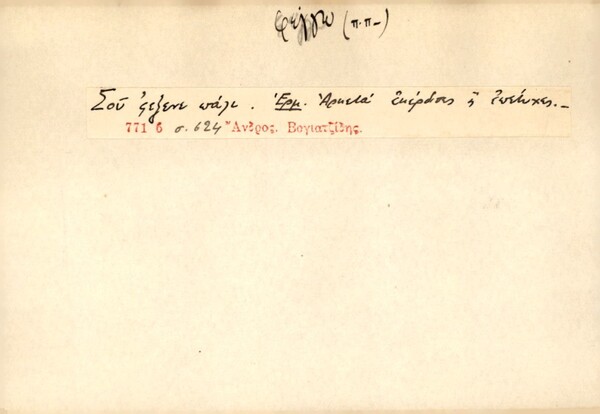 φέγγω (π.π–)
Σοῦ ἔφεξενε πάλι. Ἑρμ. Ἀρκετά ἐκέρδισες ἤ ἐπέτυχες.–
771 6 σ. 624 Ἄνδρος. Βογιατζίδης.